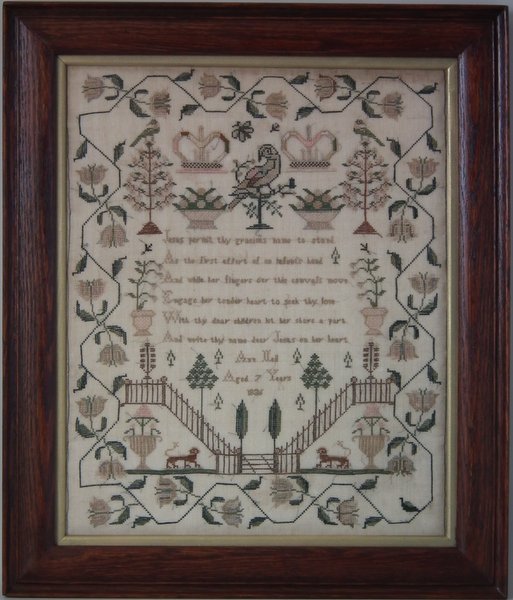 Jesus permit thy gracious name to stand
As the first effort of an infants hand
And while her fingers oer this canvass move
Engage her tender heart to seek thy love
With thy dear children let her share a part
And write thy name dear Jesus on her heart
Ann
Aged 7 Years